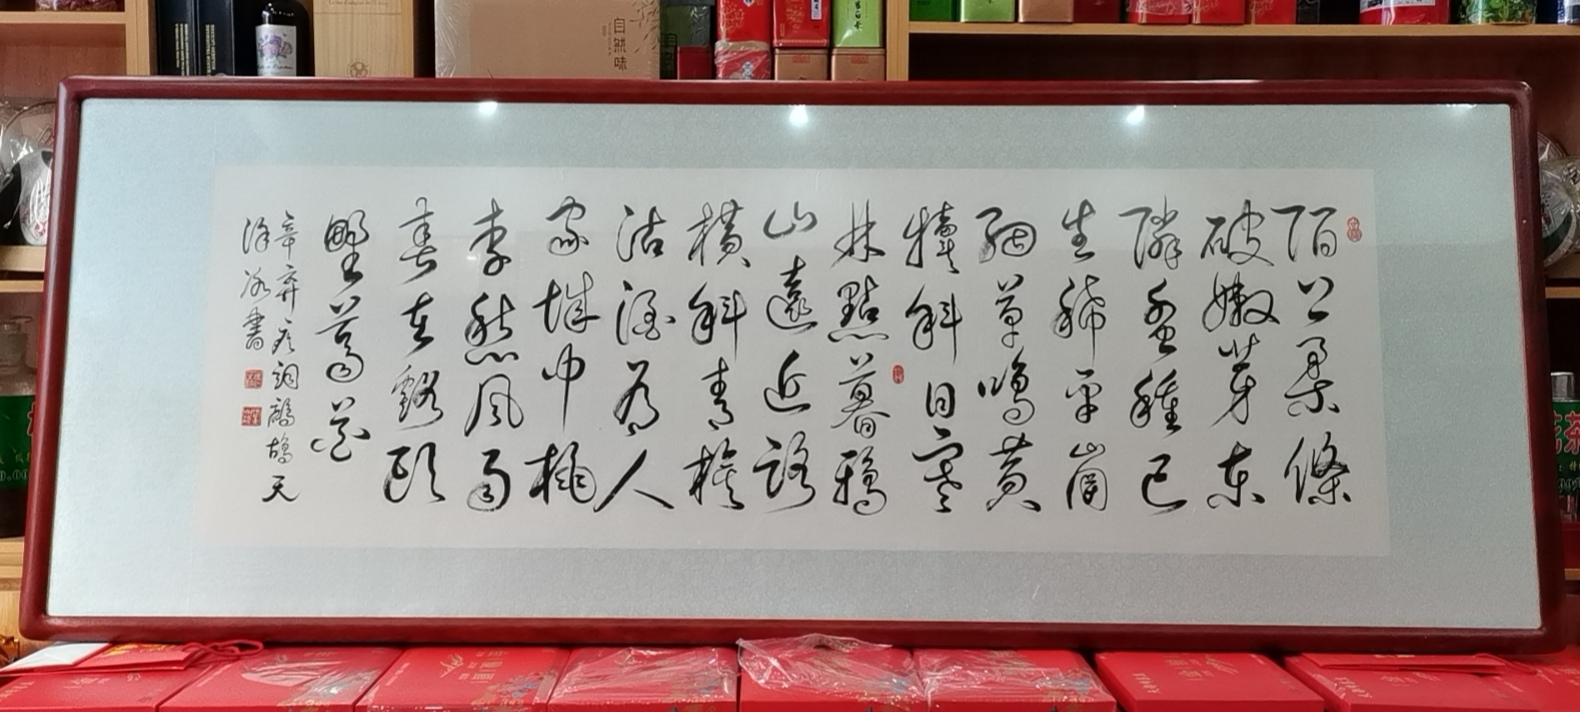 自然味
陌上柔條
破嫩芽東
隣蚕種已
生平崗
細草鳴黄
犢斜日寒
林點暮鴉
山遠近路
横斜青旗
沽酒有人
家城中桃
李愁風雨
春在谿頭
野薺花
辛弃疾詞鷓鴣天
書